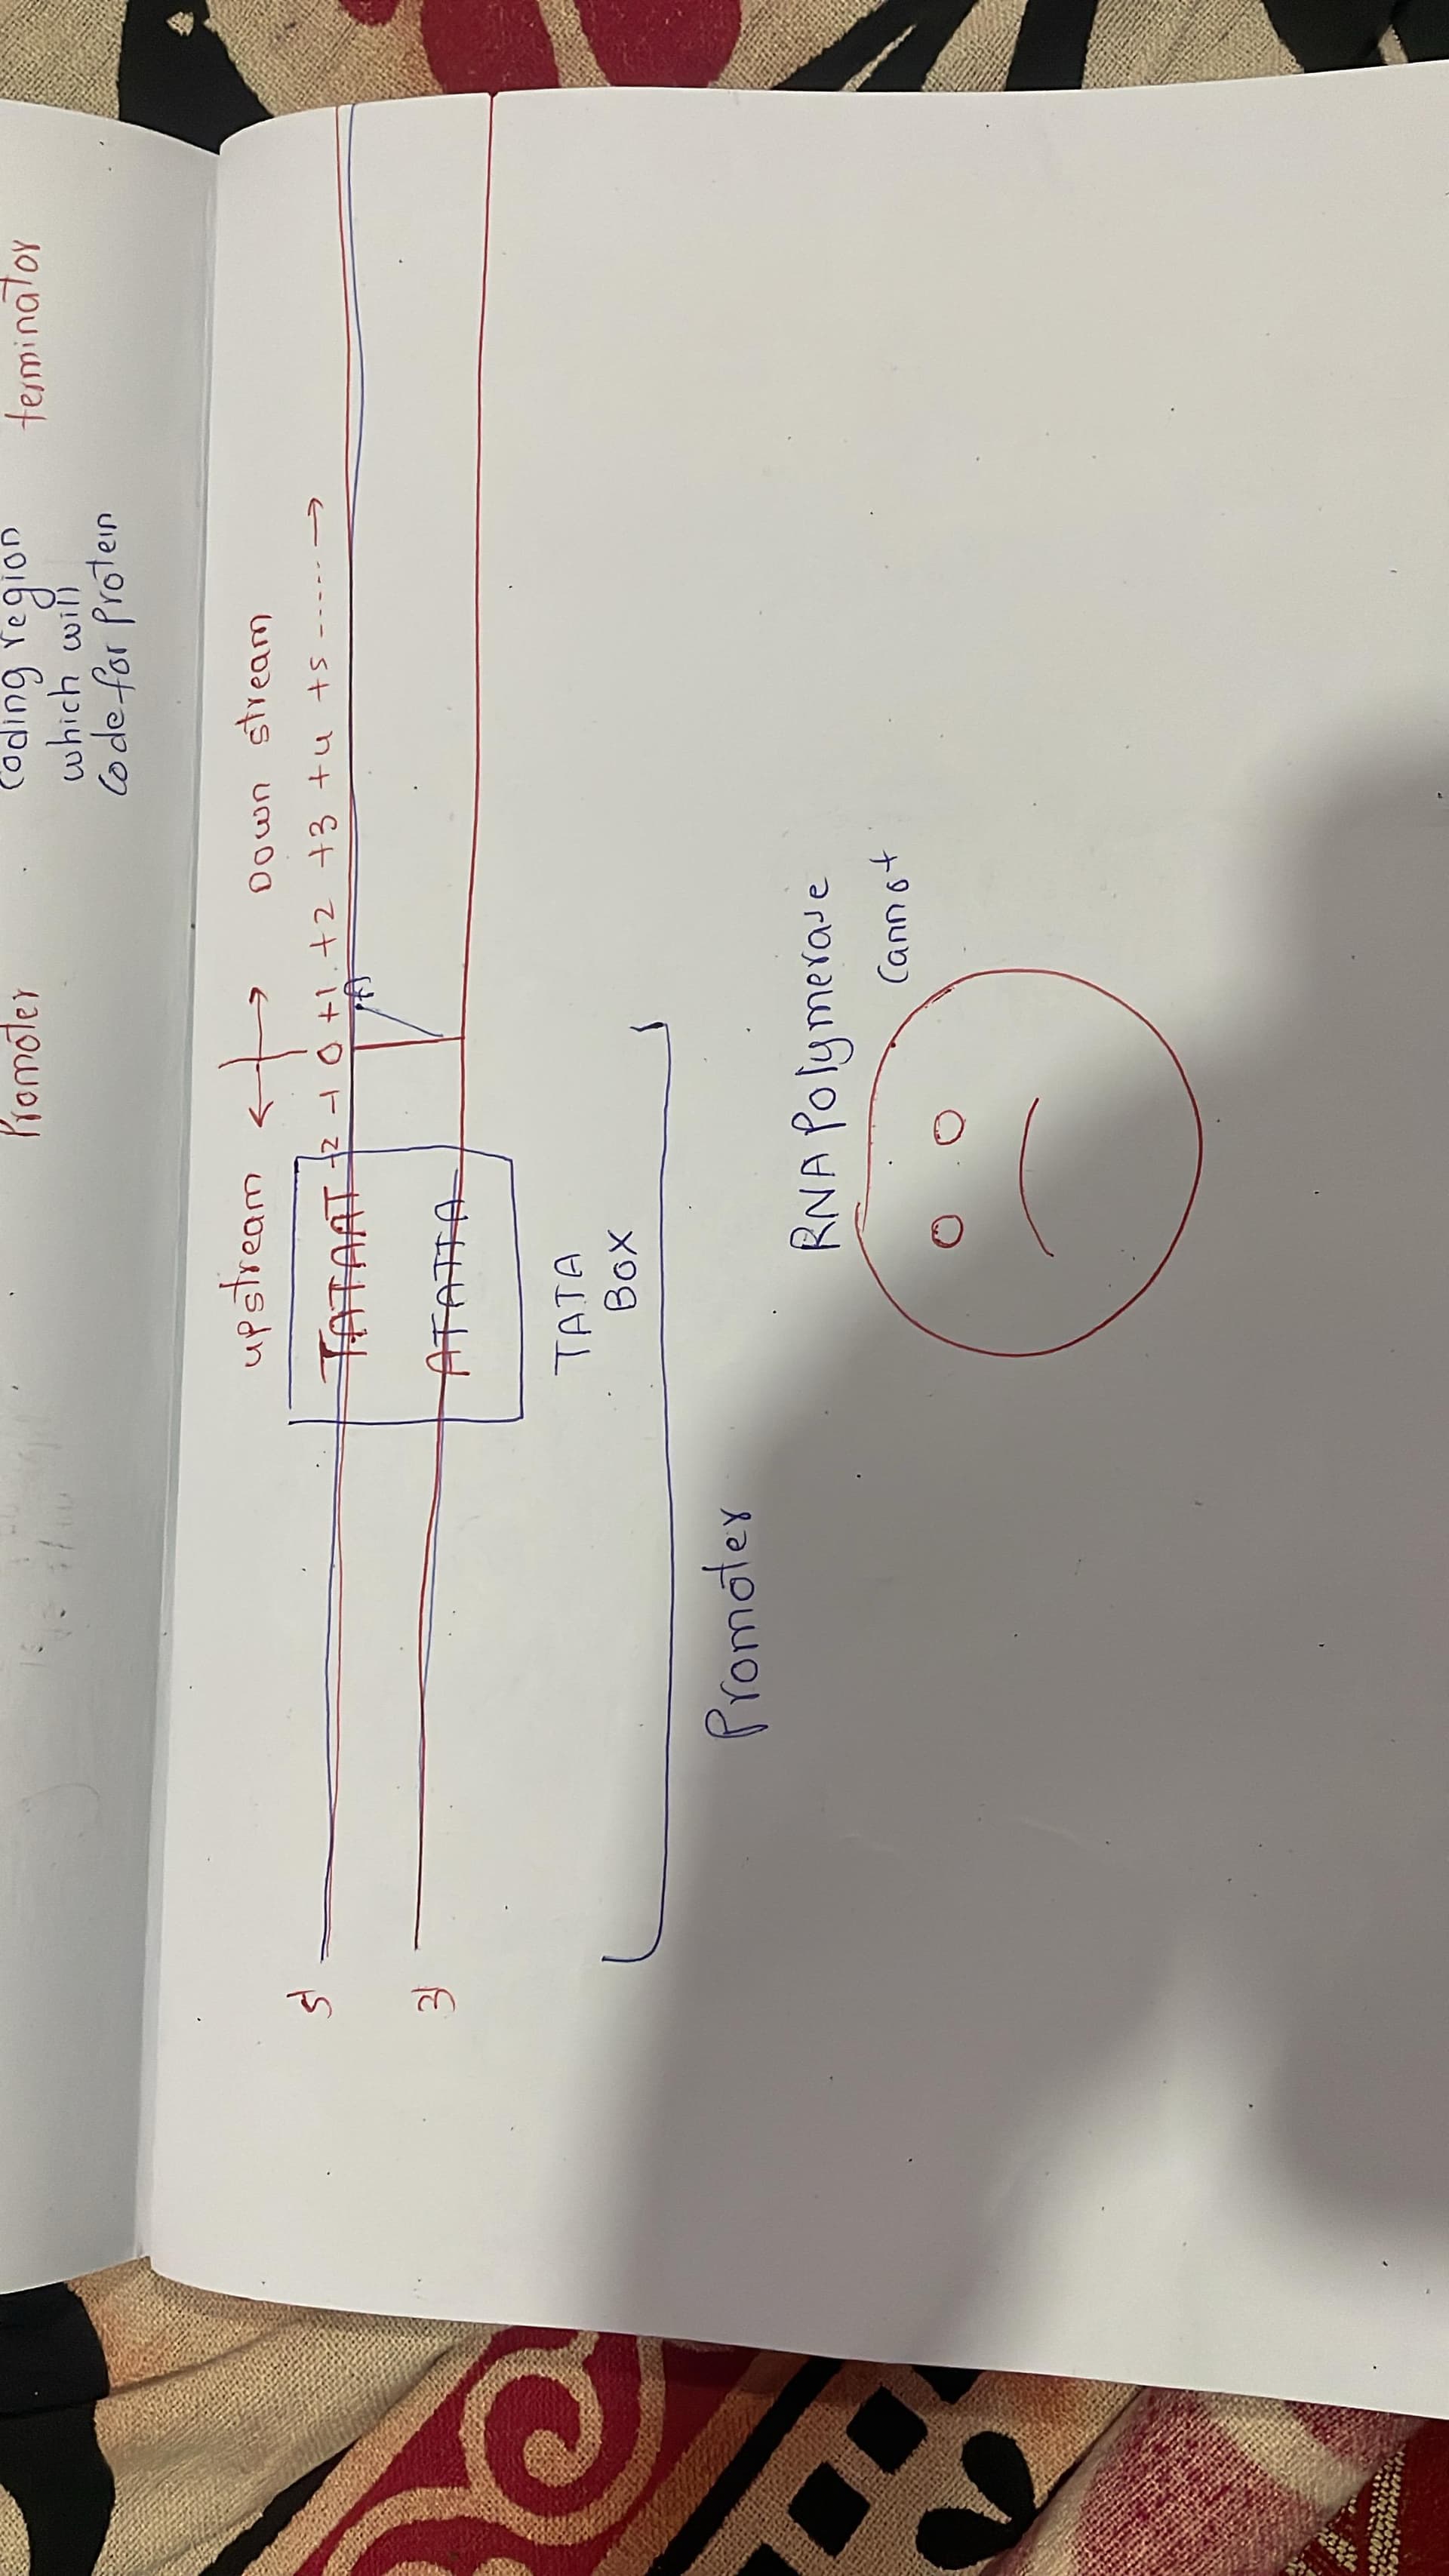 Promoter
coding region
which will
Code for Protein
terminator
upstream ← → Down stream
TATAAT -2 -1 0 +1 +2 +3 +4 +5 ------→
5'
ATATTA
3'
TATA
Box
Promoter
RNA Polymerase
Cannot